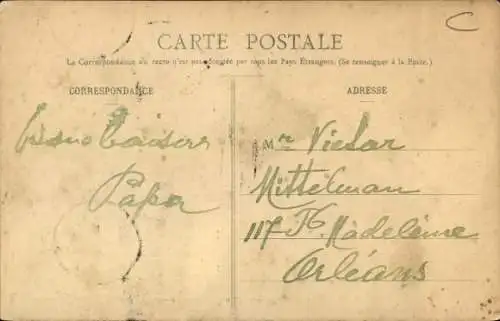 C
CARTE POSTALE
La Correspondance au recto n'est pas acceptée par tous les Pays Étrangers. (Se renseigner à la Poste.)
CORRESPONDANCE
ADRESSE
baisers
Papa
Mr Victor
Mittelman
117 Fg Madeleine
Orléans